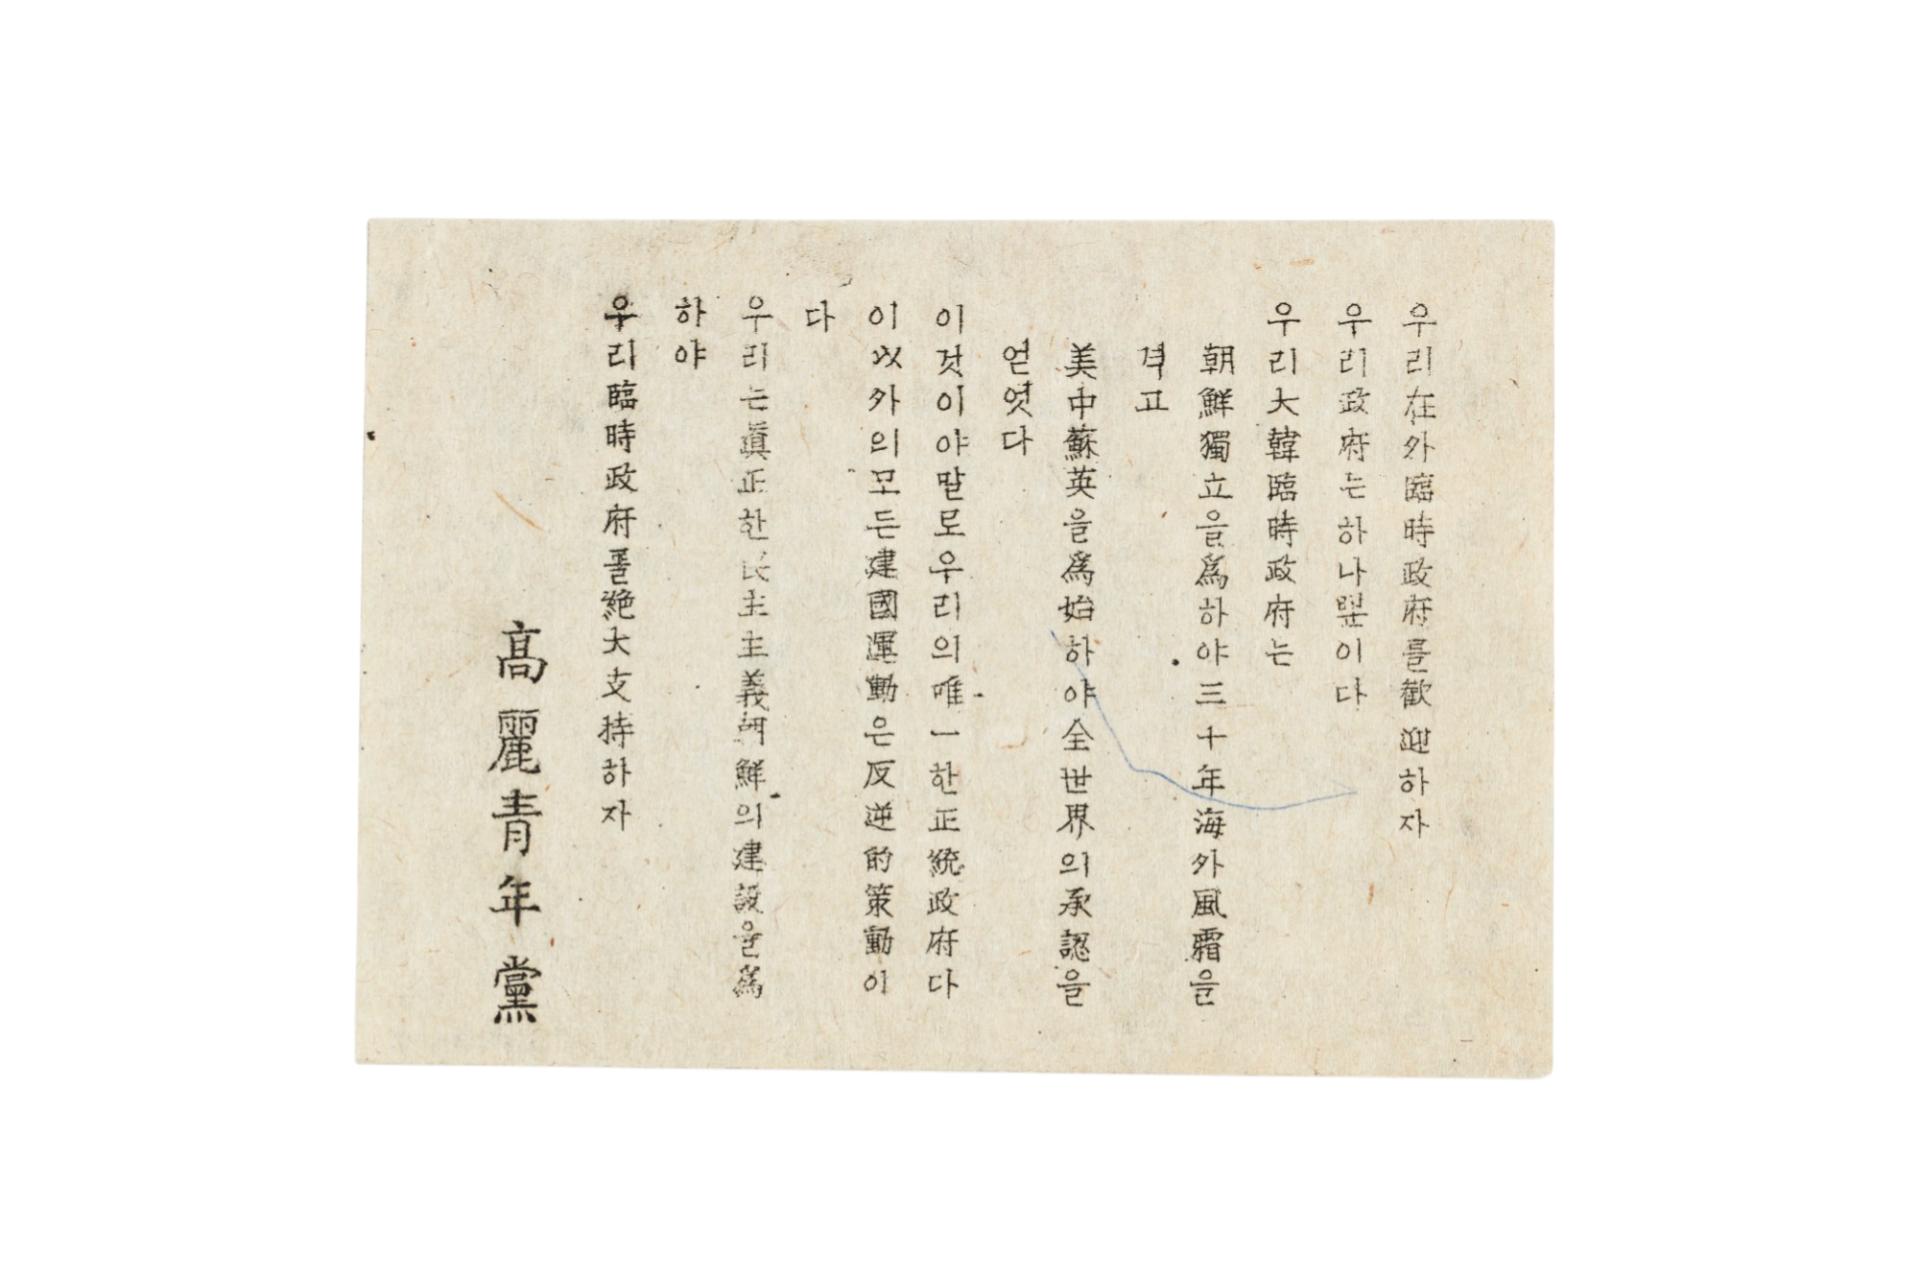 우리在外臨時政府를歡迎하자
우리政府는하나뿐이다
우리大韓臨時政府는
朝鮮獨立을爲하야三十年海外風霜을
격고
美中蘇英을爲始하야全世界의承認을
얻엿다
이것이야말로우리의唯一한正統政府다
이以外의모든建國運動은反逆的策動이
다
우리는眞正한民主主義朝鮮의建設을爲
하야
우리臨時政府를絶大支持하자
高麗青年黨